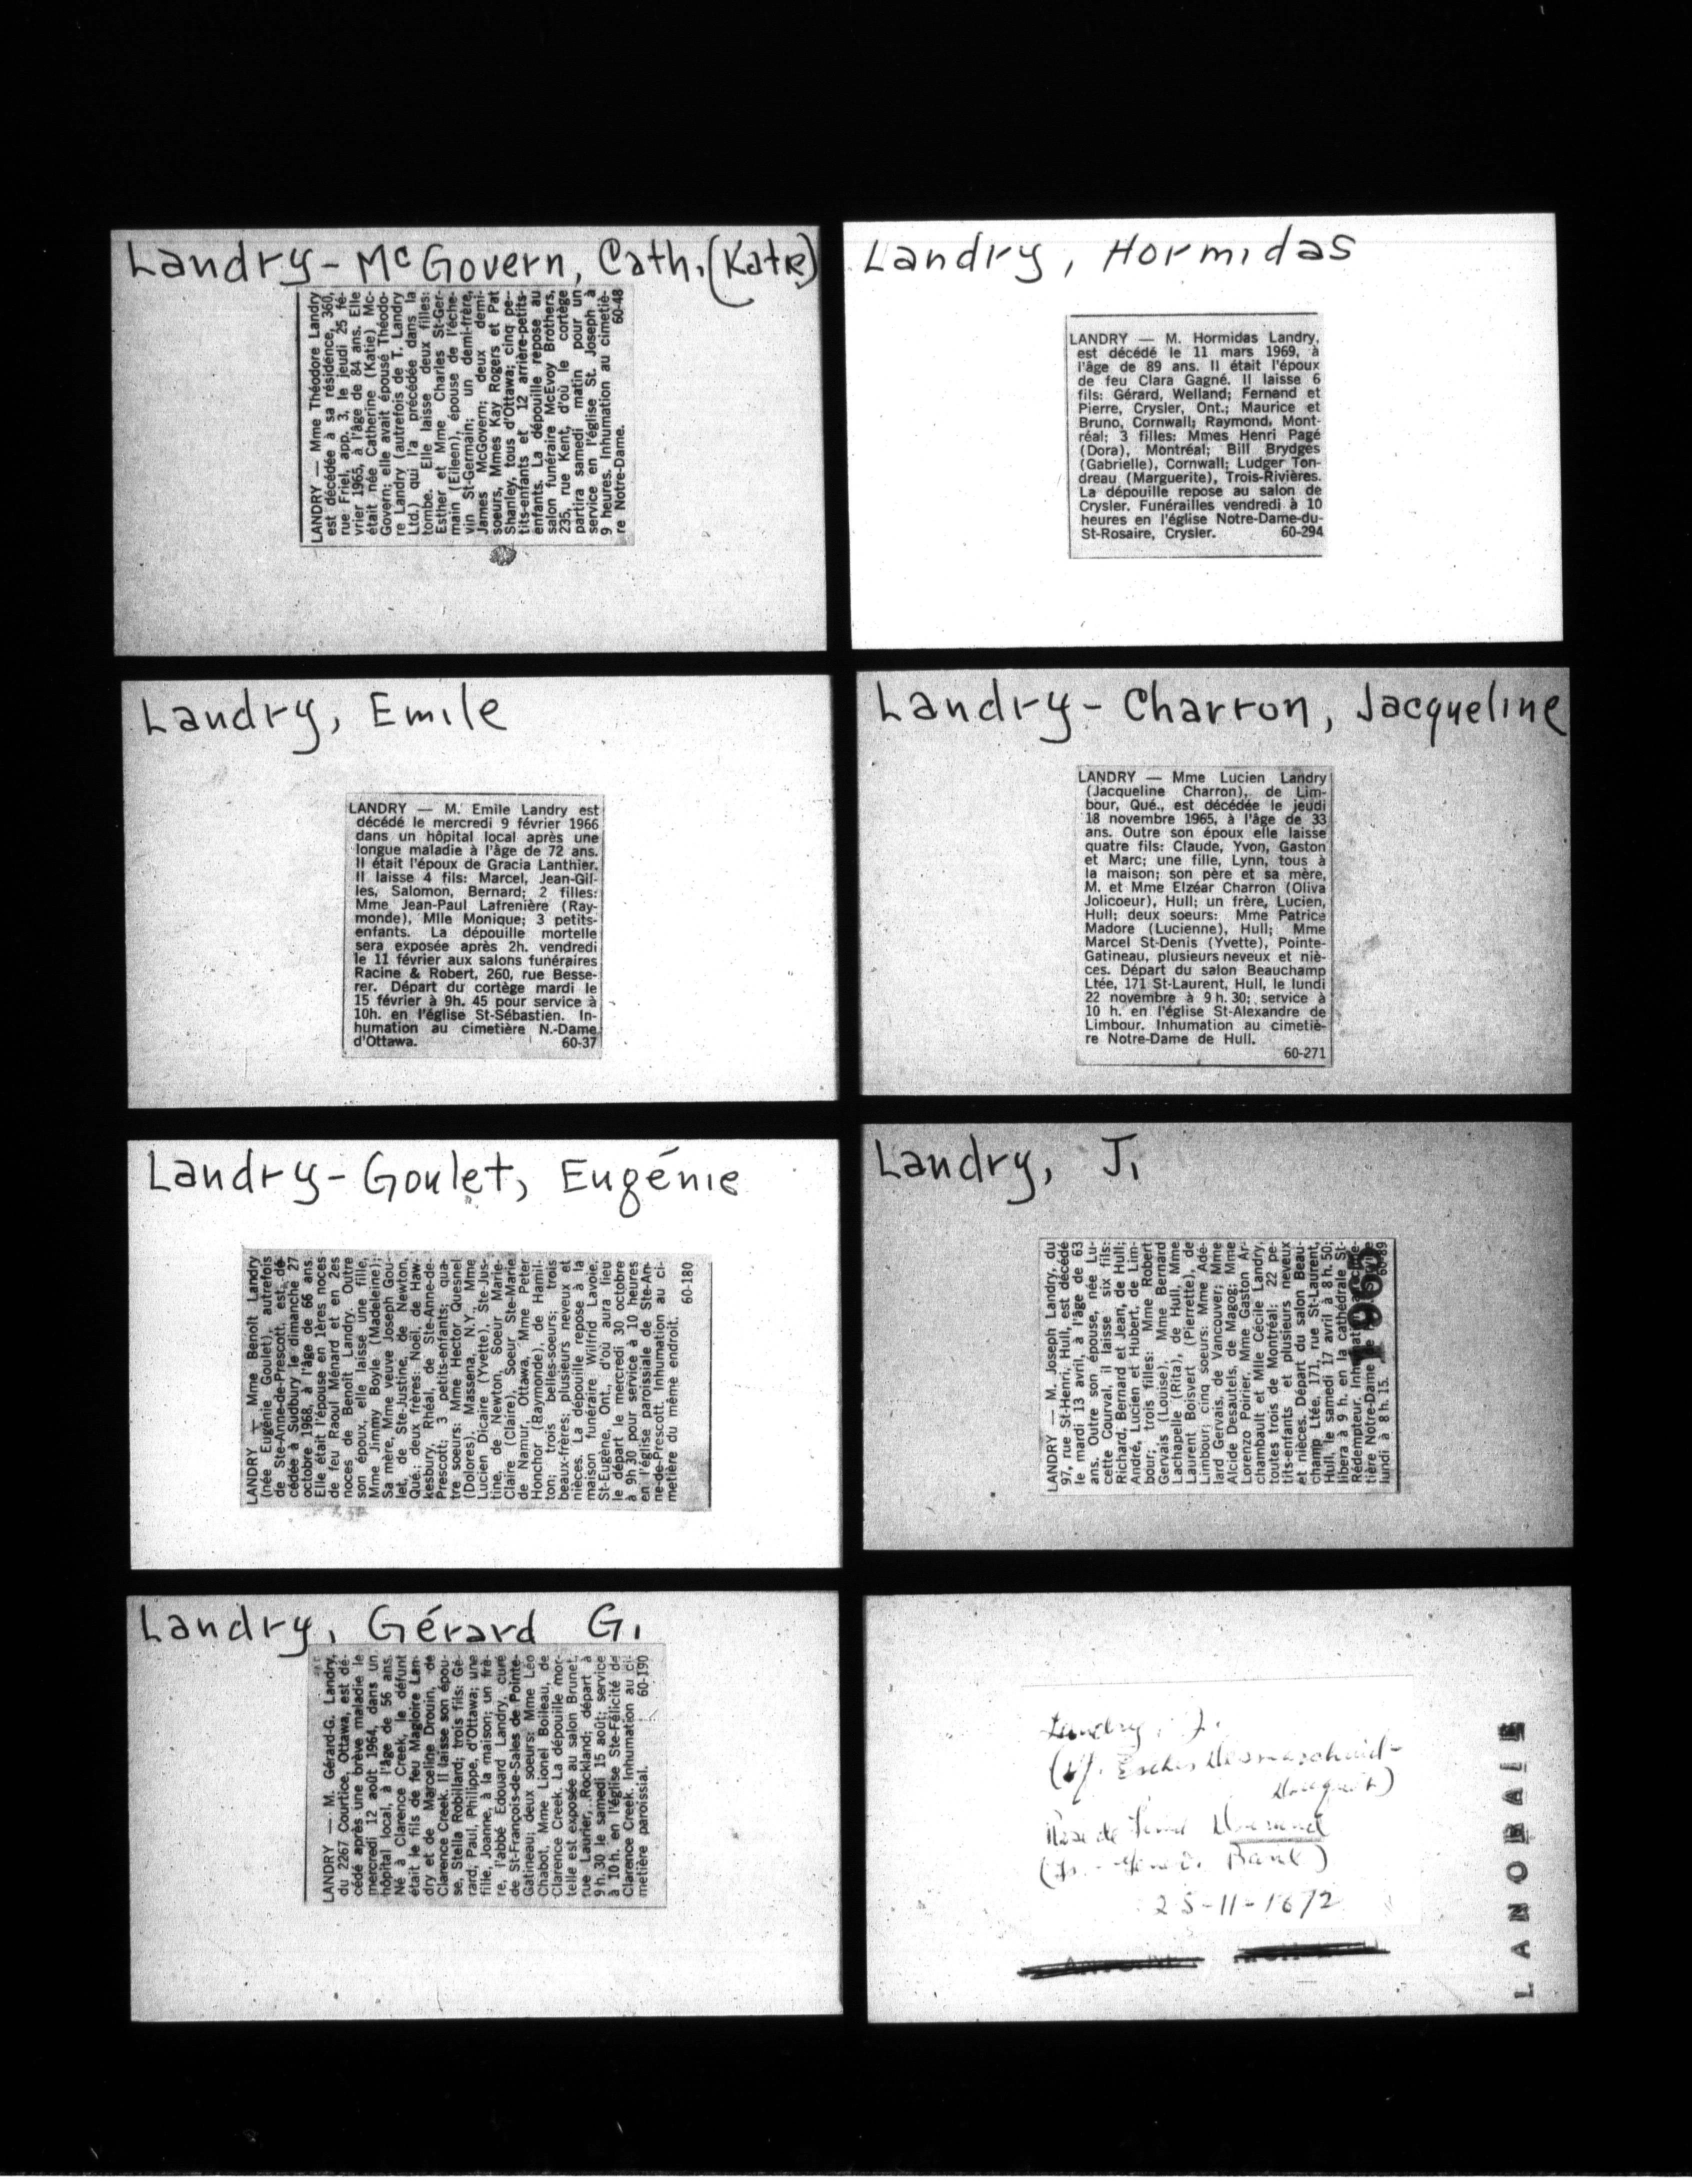 Landry-McGovern, Cath. (Katie)
LANDRY — Mme Théodore Landry
est décédée à sa résidence, 360,
rue Friel, app. 3, le jeudi 25 fé-
vrier 1965, à l'âge de 84 ans. Elle
était née Catherine (Katie) Mc-
Govern; elle avait épousé Théodo-
re Landry (autrefois de T. Landry
Ltd.) qui l'a précédée dans la
tombe. Elle laisse deux filles:
Esther et Mme Charles St-Ger-
main (Eileen), épouse de l'éche-
vin St-Germain; un demi-frère,
James McGovern; deux demi-
soeurs, Mmes Kay Rogers et Pat
Shanley, tous d'Ottawa; cinq pe-
tits-enfants et 12 arrière-petits-
enfants. La dépouille repose au
salon funéraire McEvoy Brothers,
235, rue Kent, d'où le cortège
partira samedi matin pour un
service en l'église St. Joseph à
9 heures. Inhumation au cimetiè-
re Notre-Dame. 60-48
Landry, Hormidas
LANDRY — M. Hormidas Landry,
est décédé le 11 mars 1969, à
l'âge de 89 ans. Il était l'époux
de feu Clara Gagné. Il laisse 6
fils: Gérard, Welland; Fernand et
Pierre, Crysler, Ont.; Maurice et
Bruno, Cornwall; Raymond, Mont-
réal; 3 filles: Mmes Henri Pagé
(Dora), Montréal; Bill Brydges
(Gabrielle), Cornwall; Ludger Ton-
dreau (Marguerite), Trois-Rivières.
La dépouille repose au salon de
Crysler. Funérailles vendredi à 10
heures en l'église Notre-Dame-du-
St-Rosaire, Crysler. 60-294
Landry, Emile
LANDRY — M. Emile Landry est
décédé le mercredi 9 février 1966
dans un hôpital local après une
longue maladie à l'âge de 72 ans.
Il était l'époux de Gracia Lanthier.
Il laisse 4 fils: Marcel, Jean-Gil-
les, Salomon, Bernard; 2 filles:
Mme Jean-Paul Lafrenière (Ray-
monde), Mlle Monique; 3 petits-
enfants. La dépouille mortelle
sera exposée après 2h. vendredi
le 11 février aux salons funéraires
Racine & Robert, 260, rue Besse-
rer. Départ du cortège mardi le
15 février à 9h. 45 pour service à
10h. en l'église St-Sébastien. In-
humation au cimetière N.-Dame
d'Ottawa. 60-37
Landry-Charron, Jacqueline
LANDRY — Mme Lucien Landry
(Jacqueline Charron), de Lim-
bour, Qué., est décédée le jeudi
18 novembre 1965, à l'âge de 33
ans. Outre son époux elle laisse
quatre fils: Claude, Yvon, Gaston
et Marc; une fille, Lynn, tous à
la maison; son père et sa mère,
M. et Mme Elzéar Charron (Oliva
Jolicoeur), Hull; un frère, Lucien,
Hull; deux soeurs: Mme Patrice
Madore (Lucienne), Hull; Mme
Marcel St-Denis (Yvette), Pointe-
Gatineau, plusieurs neveux et niè-
ces. Départ du salon Beauchamp
Ltée, 171 St-Laurent, Hull, le lundi
22 novembre à 9 h. 30; service à
10 h. en l'église St-Alexandre de
Limbour. Inhumation au cimetiè-
re Notre-Dame de Hull.
60-271
Landry-Goulet, Eugénie
LANDRY — Mme Benoît Landry
(née Eugénie Goulet), autrefois
de Ste-Anne-de-Prescott, est dé-
cédée à Sudbury le dimanche 27
octobre 1968, à l'âge de 66 ans.
Elle était l'épouse en 1ères noces
de feu Raoul Ménard et en 2es
noces de Benoît Landry. Outre
son époux, elle laisse une fille,
Mme Jimmy Boyle (Madeleine);
Sa mère, Mme veuve Joseph Gou-
let, de Ste-Justine, de Newton,
Qué.; deux frères: Noël, de Haw-
kesbury, Rhéal, de Ste-Anne-de-
Prescott; 3 petits-enfants; qua-
tre soeurs: Mme Hector Quesnel
(Dolores), Massena, N.Y., Mme
Lucien Dicaire (Yvette), Ste-Jus-
tine, de Newton, Soeur Marie-
Claire (Claire), Soeur Ste-Marie
de Namur, Ottawa, Mme Peter
Honchor (Raymonde), de Hamil-
ton; trois belles-soeurs; trois
beaux-frères; plusieurs neveux et
nièces. La dépouille repose à la
maison funéraire Wilfrid Lavoie,
St-Eugène, Ont., d'où aura lieu
le départ le mercredi 30 octobre
à 9h 30 pour service à 10 heures
en l'église paroissiale de Ste-An-
ne-de-Prescott. Inhumation au ci-
metière du même endroit.
60-180
Landry, J.
LANDRY — M. Joseph Landry, du
97, rue St-Henri, Hull, est décédé
le mardi 13 avril, à l'âge de 63
ans. Outre son épouse, née Lu-
cette Courval, il laisse six fils:
Richard, Bernard et Jean, de Hull;
André, Lucien et Hubert, de Lim-
bour; trois filles: Mme Robert
Gervais (Louise), Mme Bernard
Lachapelle (Rita), de Hull, Mme
Laurent Boisvert (Pierrette), de
Limbour; cinq soeurs: Mme Adé-
lard Gervais, de Vancouver; Mme
Alcide Desautels, de Magog; Mme
Lorenzo Poirier, Mme Gaston Ar-
chambault et Mlle Cécile Landry,
toutes trois de Montréal; 22 pe-
tits-enfants et plusieurs neveux
et nièces. Départ du salon Beau-
champ Ltée, 171, rue St-Laurent,
Hull, le samedi 17 avril à 8 h. 50;
libera à 9 h. en la cathédrale St-
Rédempteur. Inhumation au cime-
tière Notre-Dame
lundi à 8 h. 15. 60-89
1965
Landry, Gérard G.
LANDRY — M. Gérard-G. Landry,
du 2267 Courtice, Ottawa, est dé-
cédé après une brève maladie le
mercredi 12 août 1964, dans un
hôpital local, à l'âge de 56 ans.
Né à Clarence Creek, le défunt
était le fils de feu Magloire Lan-
dry et de Marceline Drouin, de
Clarence Creek. Il laisse son épou-
se, Stella Robillard; trois fils: Gé-
rard, Paul, Philippe, d'Ottawa; une
fille, Joanne, à la maison; un frè-
re, l'abbé Edouard Landry, curé
de St-François-de-Sales de Pointe-
Gatineau; deux soeurs: Mme Léo
Chabot, Mme Lionel Boileau, de
Clarence Creek. La dépouille mor-
telle est exposée au salon Brunet,
rue Laurier, Rockland; départ à
9 h. 30 le samedi 15 août; service
à 10 h. en l'église Ste-Félicité de
Clarence Creek. Inhumation au ci-
metière paroissial. 60-190
Landry, J.
25-11-1672
LANORAIE